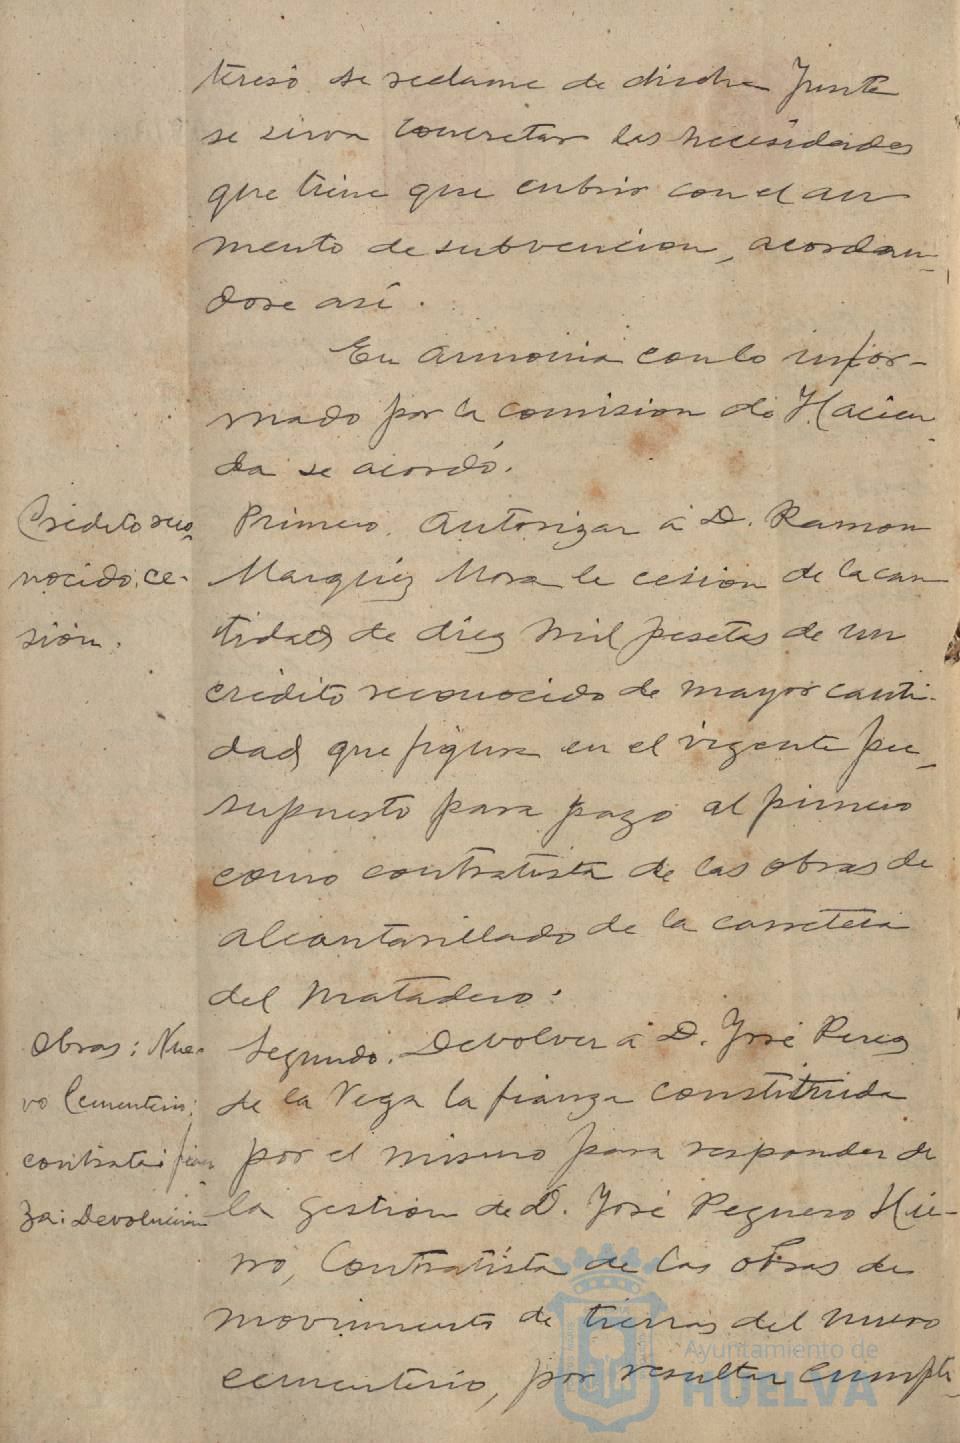 teresó se reclame de dicha Junta
se sirva concretar las necesidades
que tiene que cubrir con el au
mento de subvencion, acordan-
dose así.
En armonia con lo infor-
mado por la comision de Hacien-
da se acordó.
Crédito reco-
nocido. ce-
sión.
Primero. Autorizar a D. Ramon
Marquez Mora la cesion de la can
tidad de diez mil pesetas de un
crédito reconocido de mayor canti-
dad que figura en el vigente pre-
supuesto para pago al primero
como contratista de las obras de
alcantarillado de la carretera
del Matadero.
Obras: Nue-
vo Cementerio:
contrata: fian-
za: Devolucion
Segundo. Devolver a D. José Perez
de la Vega la fianza constituida
por el mismo para responder de
la gestion de D. José Peguero Hie-
rro, Contratista de las obras de
movimiento de tierras del nuevo
cementerio, por resultar cumpli-
Ayuntamiento de
HUELVA